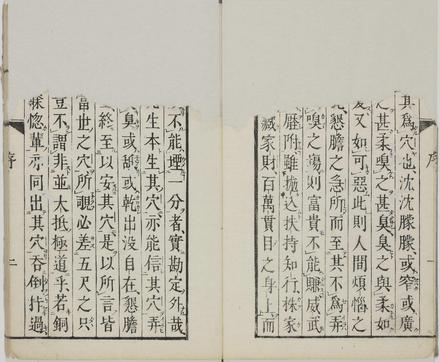 其爲穴也沈沈朦朦或窄或廣
之甚柔嗅之甚臭臭之與柔如
又如可惡此則人間煩惱之
懇膽之急所而至其不爲弄
嗅之蕩則富貴不能賺威武
附雖込扶持知行株家
藏家財百萬貫目之身上而
序
一
不能堙一分者實勘定外哉
生本生其穴亦能信其穴弄
臭或辭或乾出沒自在懇膽
終至以安其穴是以所言皆
當世之穴所覗必差五尺之只
豆不謂非並大抵極道乎若銅
惚輩亦同出其穴呑倒過
序
二